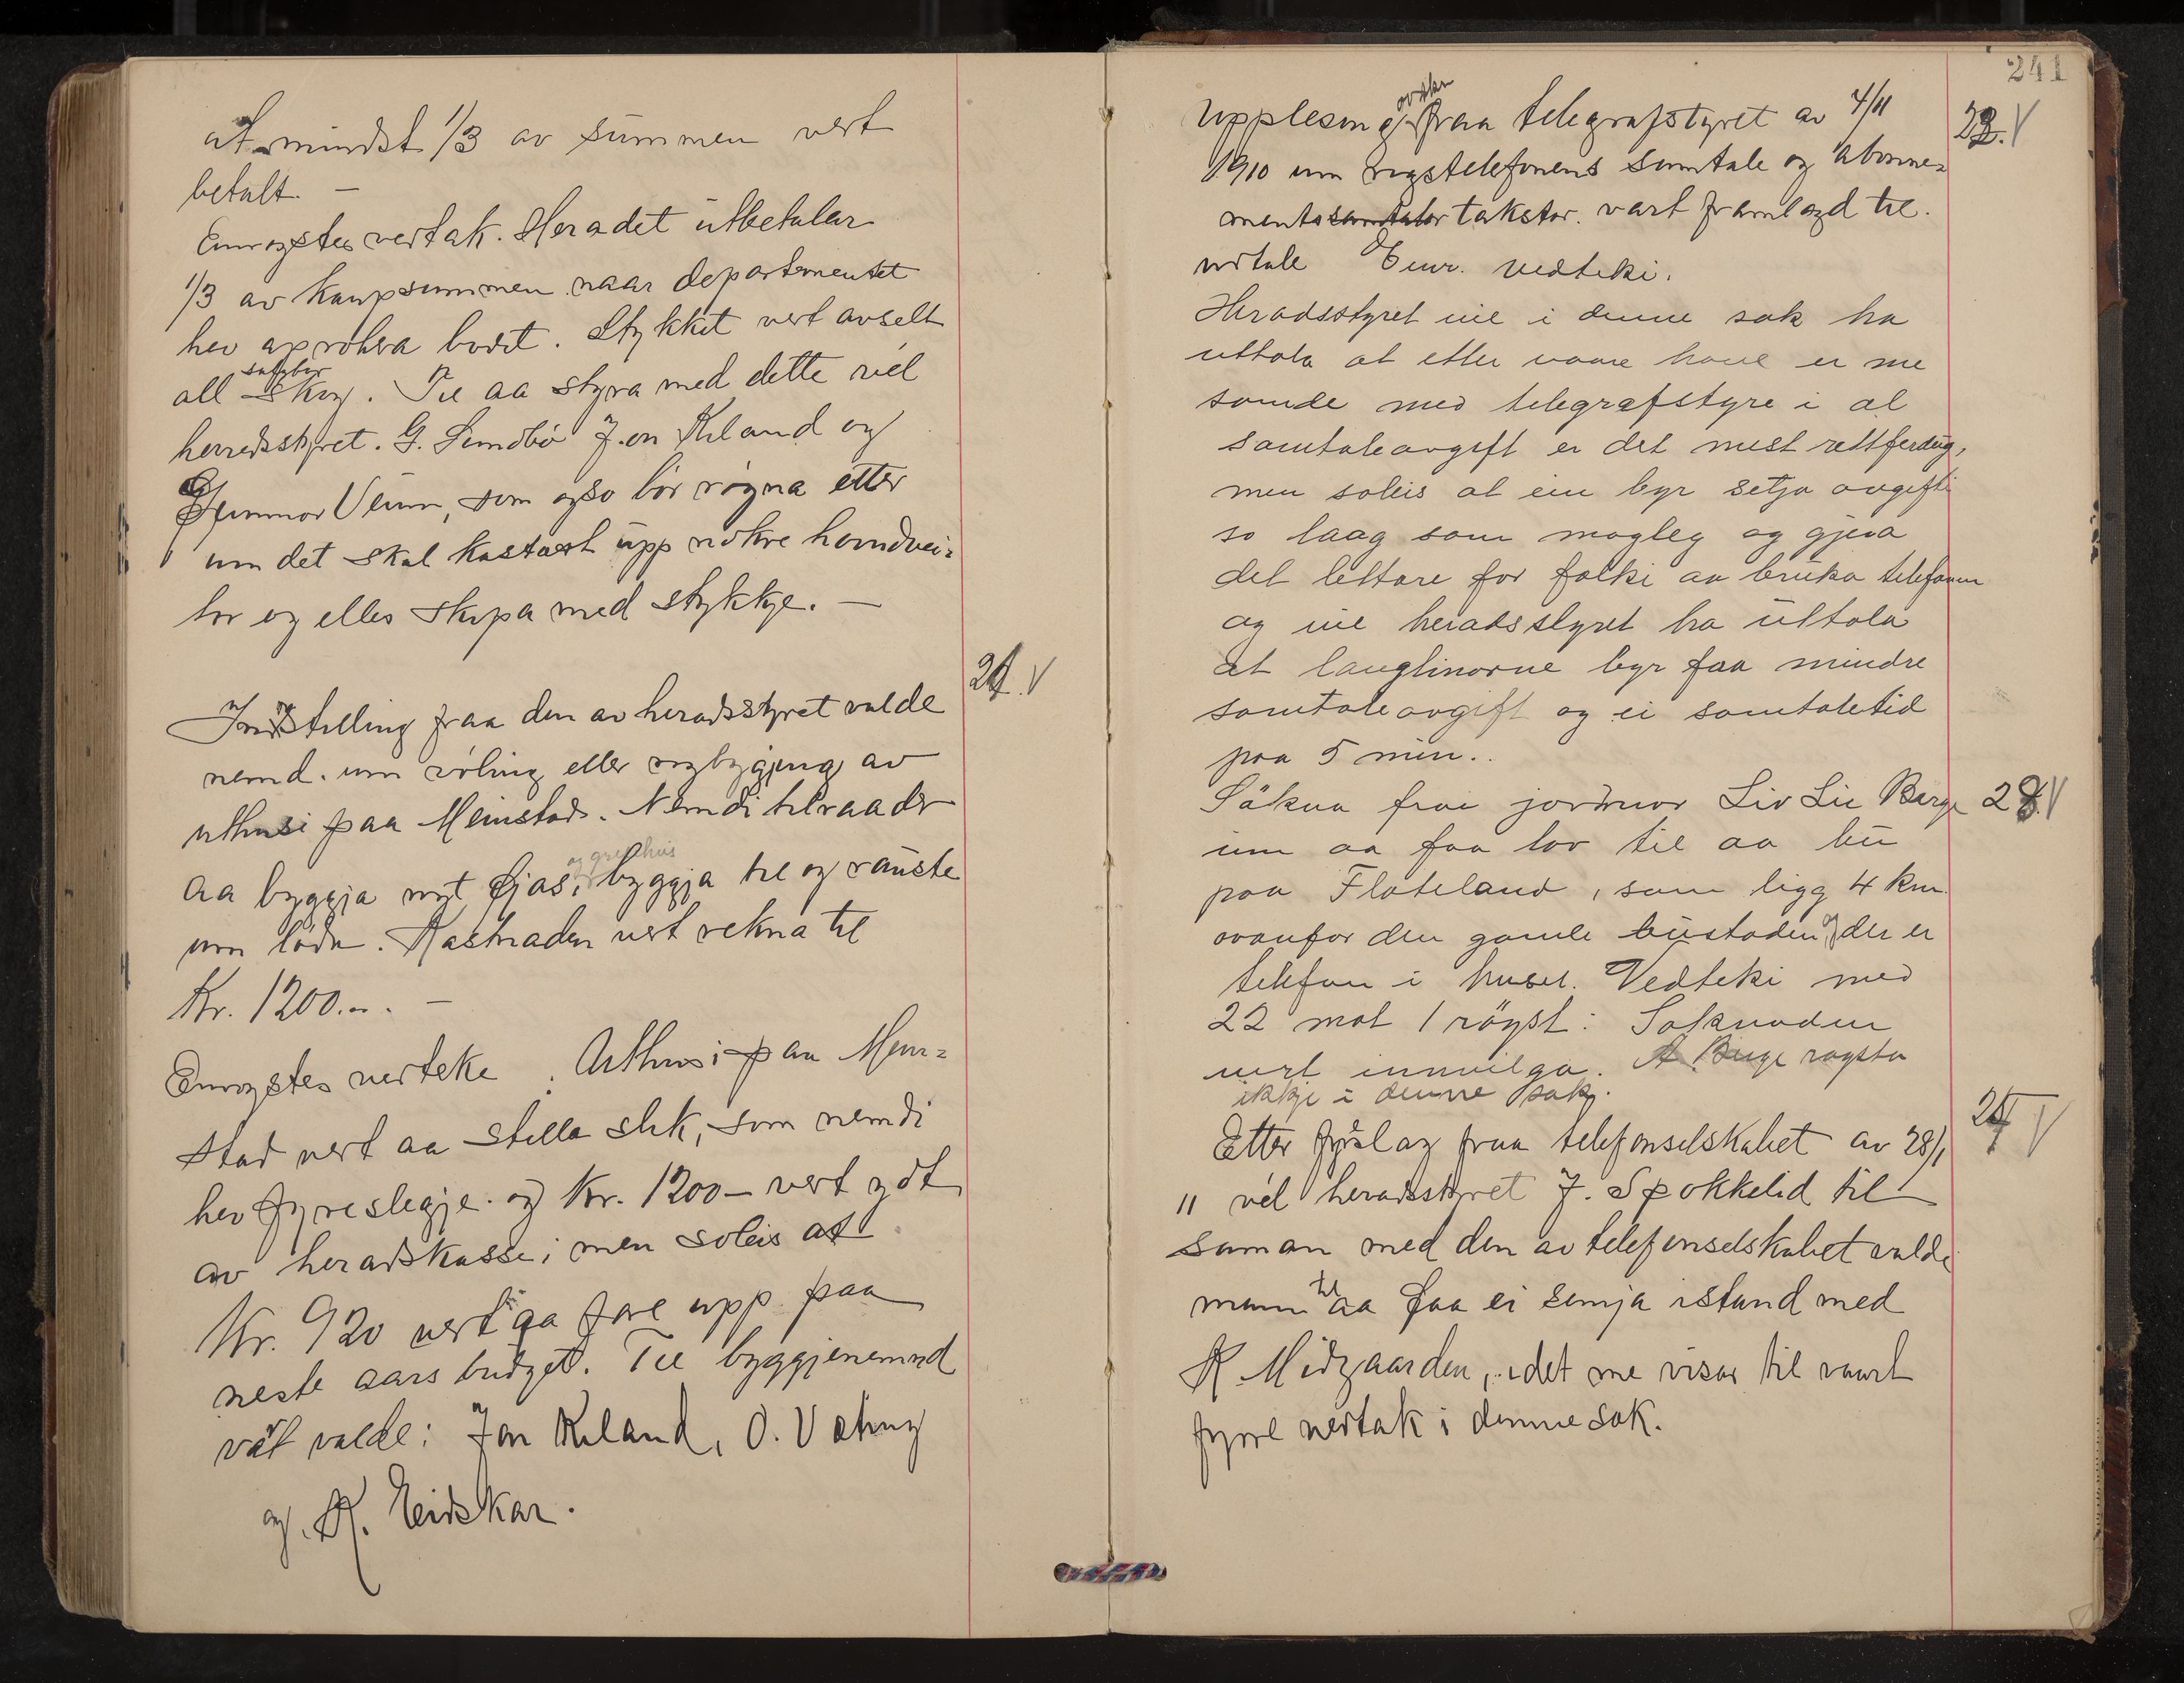 at mindst 1/3 av summen vert
betalt. —
Einrøystes vertak. Heradet utbetalar
1/3 av kaupsummen naar departementet
hev aprobera bodet. Stykket vert avselt
all skog. Til aa styra med dette vel
herredsstyret. G. Sundbö Jon Kiland og
Gunnor Veum, som ogso bör røgna etter
um det skal kastast upp nokre handvei-
tor og elles skipa med stykkje. —
21. V
Instilling fraa den av heradsstyret valde
nemd. um völing eller nybygjing av
uthusi paa Meinstad. Nemdi tilraader
og grishus
aa byggja nyt fjøs, byggja til og rauste
um löda. Kastnaden vert rekna til
Kr. 1200.–. —
Einrøystes verteke. Uthusi paa Mein-
stad vert aa stella slik, som nemdi
hev fyreslegje. og Kr. 1200 – vert ydt
av heradskasse; men soleis at
Kr. 920 vert aa före upp paa
neste aars budget. Til byggjenemnd
vart valde: Jon Kiland, O. Vating
og K. Eidskar.
241
Upplesing fraa telegrafstyret av 4/11
22. V
1910 um rigstelefonens samtale og abonne-
ments samtaler takstar. vart framlagd til
uttale Einr. vedteki.
Heradsstyret vil i denne sak ha
uttala at etter vaare have er me
samde med telegrafstyre i al
samtaleavgift er det mest rettferdig,
men soleis at ein byr setja avgifti
so laag som mogleg og gjera
det lettare for folki aa bruka telefonen
og vil heradsstyret ha uttala
at langlinorne byr faa mindre
samtaleavgift og ei samtaletid
paa 5 min..
Söknà frai jordmor Liv Lie Berge
23. V
um aa faa lov til aa bu
paa Flateland, som ligg 4 km.
ovanfor den gamle bustaden og der er
telefon i huset. Vedteki med
22 mot 1 röyst: Soknaden
vert innvilga. A Berge røysta
ikkje i denne sak.
24 V
Etter fyslag fraa telefonselskabet av 28/1
11 vel heradsstyret J. Spokkelid til
saman med den av telefonselskabet valde
mann til aa faa ei semja istand med
K Midgaarden, idet me visar til vaart
fyrre vertak i denne sak.